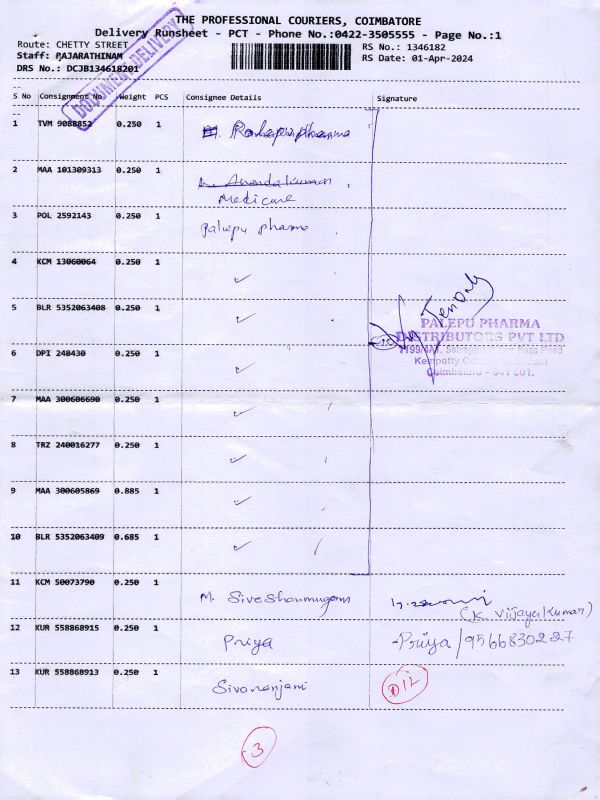 THE PROFESSIONAL COURIERS, COIMBATORE
Delivery Runsheet - PCT - Phone No.:0422-3505555 - Page No.:1
Route: CHETTY STREET
RS No.: 1346182
Staff: RAJARATHINAM
RS Date: 01-Apr-2024
DRS No.: DCJB134618201
DOCUMENT DELIVERY
S No Consignment No Weight PCS Consignee Details Signature
1 TVM 9088852 0.250 1
2 MAA 101309313 0.250 1 Anandakumar
Medicine
3 POL 2592143 0.250 1 Palepu pharma
4 KCM 13060064 0.250 1 ✓
5 BLR 5352063408 0.250 1 ✓
PALEPU PHARMA
DISTRIBUTORS PVT LTD
6 DPI 248430 0.250 1 ✓
Coimbatore - 641 001.
7 MAA 300606690 0.250 1 ✓
8 TRZ 240016277 0.250 1 ✓
9 MAA 300605869 0.885 1 ✓
10 BLR 5352063409 0.685 1 ✓
11 KCM 50073790 0.250 1 M. Sivashanmugam
(K. Vijayakumar)
12 KUR 558868915 0.250 1 Priya Priya/9566830227
13 KUR 558868913 0.250 1 Sivaranjani D12
3